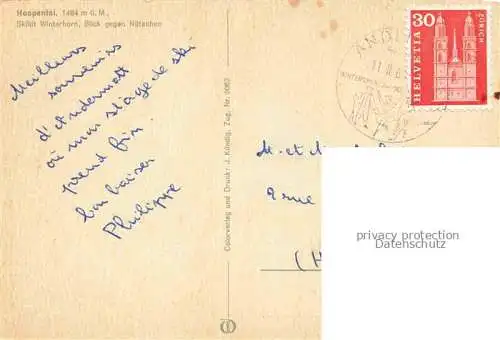 Hospental, 1484 m ü. M.,
Skilift Winterhorn, Blick gegen Nätschen
Meilleurs
souvenirs
d'Andermatt
où mon stage de ski
prend fin.
bon baiser
Philippe
Colorverlag und Druck: J. Kündig, Zug, Nr. 0062
30
ZÜRICH
HELVETIA
M. et
rue
privacy protection
Datenschutz